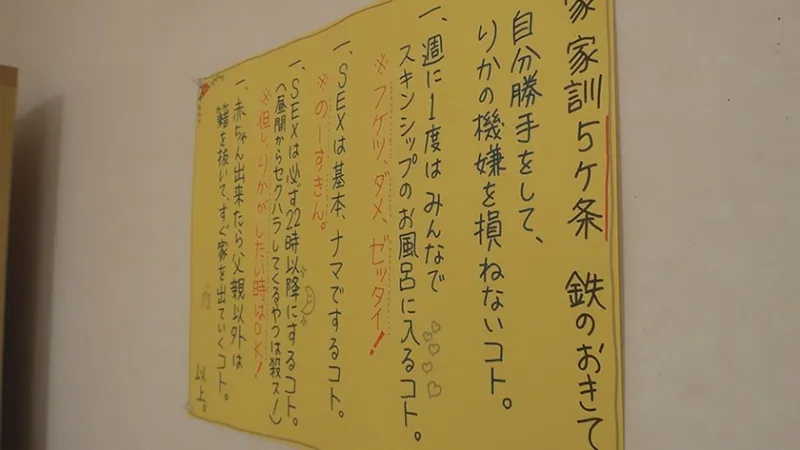 家 家訓5ケ条 鉄のおきて
自分勝手をして、
りかの機嫌を損ねないコト。
一、週に1度はみんなで
スキンシップのお風呂に入るコト。
※フケツ、ダメ、ゼッタイ!
一、SEXは基本、ナマでするコト。
※のーすきん。
一、SEXは必ず22時以降にするコト。
(昼間からセクハラしてくるやつは殺ス!)
※但し、りかがしたい時はOK!
一、赤ちゃん出来たら、父親以外は
籍を抜いて、すぐ家を出ていくコト。
以上。